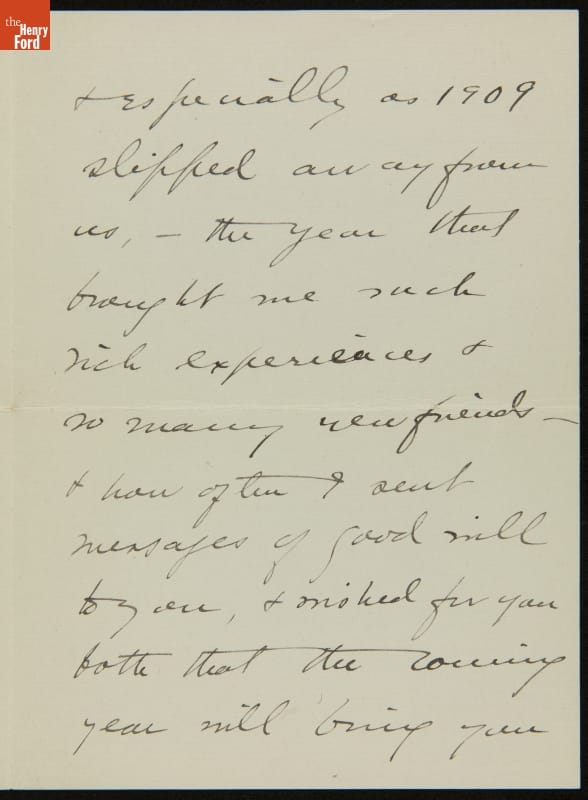 the
Henry
Ford
& especially as 1909
slipped away from
us, — the year that
brought me such
rich experiences &
so many new friends —
& how often I sent
messages of good will
to you, & wished for you
both that the coming
year will bring you